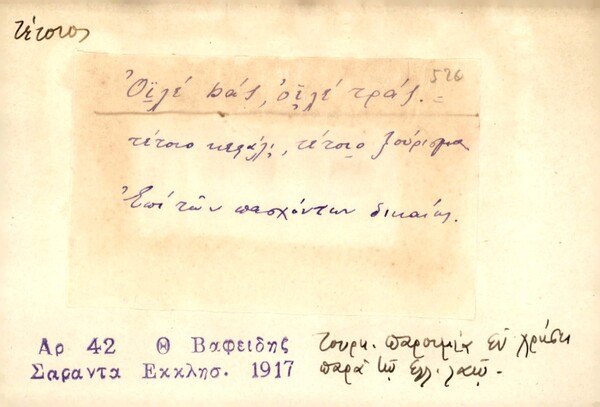 τέτοιος
526
Ὀϊλέ bάς, ὀϊλέ τράς.=
τέτοιο κεφάλι, τέτοιο ξούρισμα
Ἐπί τῶν πασχόντων δικαίως.
Αρ 42 Θ Βαφειδης
Σαραντα Εκκλησ. 1917
Τουρκ. παροιμία ἐν χρήσει
παρὰ τῷ Ἑλλ. λαῷ.